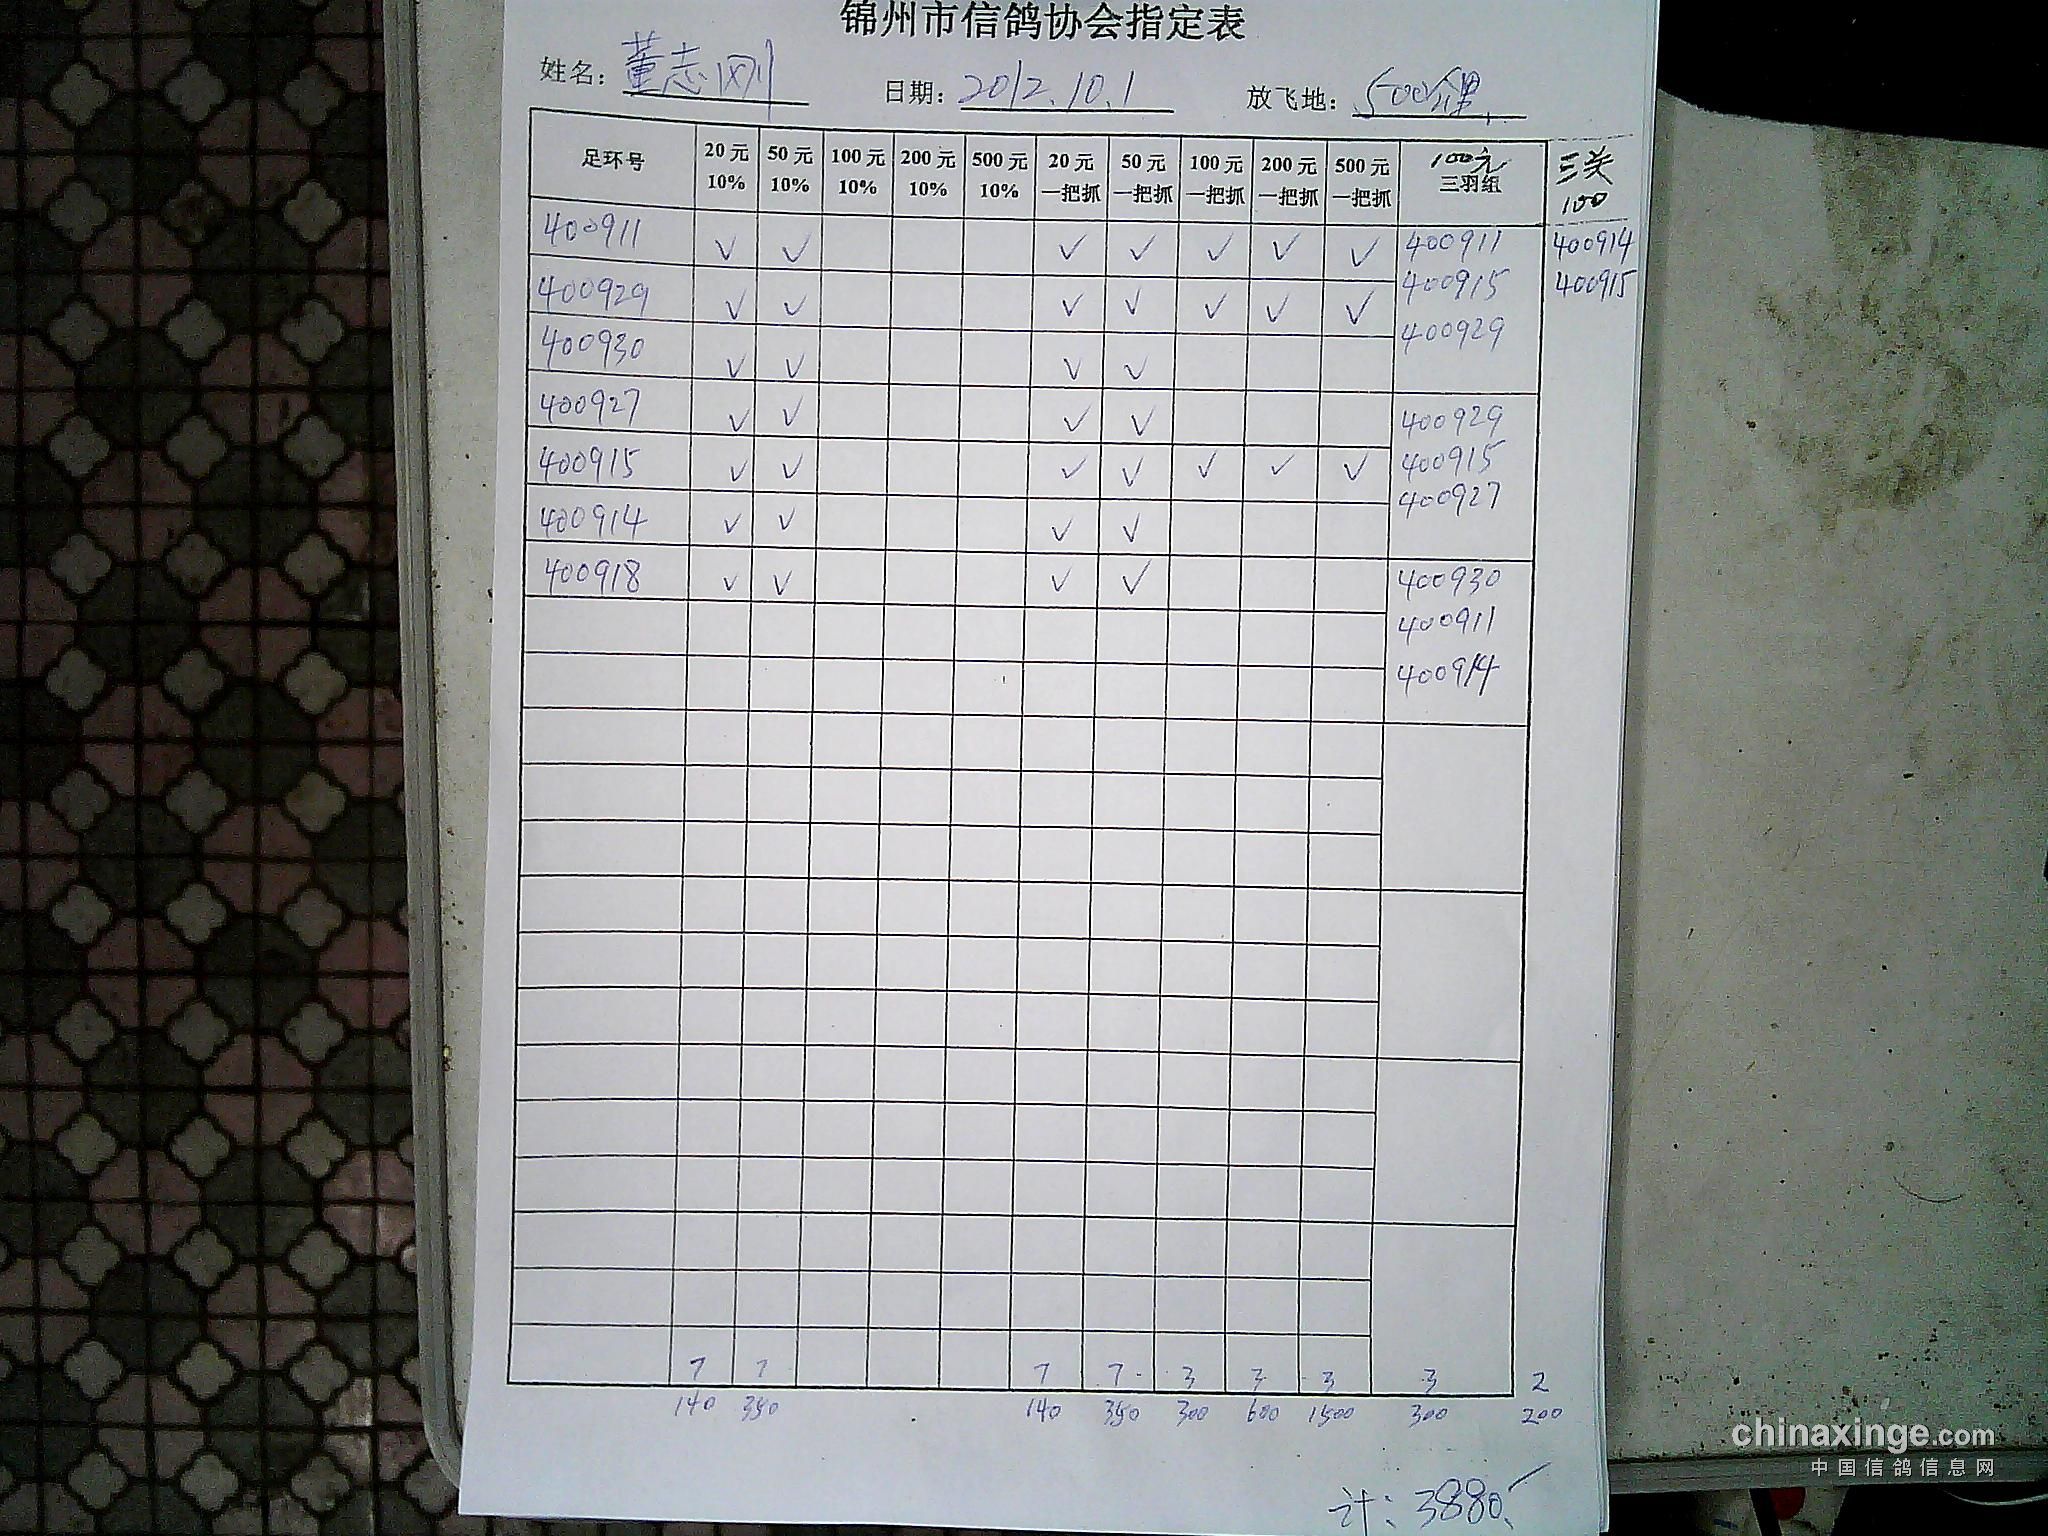 锦州市信鸽协会指定表
姓名：董志刚 日期：2012.10.1 放飞地：500公里
足环号 20元 10% 50元 10% 100元 10% 200元 10% 500元 10% 20元 一把抓 50元 一把抓 100元 一把抓 200元 一把抓 500元 一把抓 100元 三羽组 三关 100
400911 √ √ √ √ √ √ √ 400911 400914
400915 400915
400929 √ √ √ √ √ √ √ 400929
400930 √ √ √ √
400927 √ √ √ √ 400929
400915 √ √ √ √ √ √ √ 400915
400927
400914 √ √ √ √
400918 √ √ √ √ 400930
400911
400914
7 7 7 7 3 3 3 3 2
140 350 140 350 300 600 1500 300 200
计：3880
chinaxinge.com
中国信鸽信息网